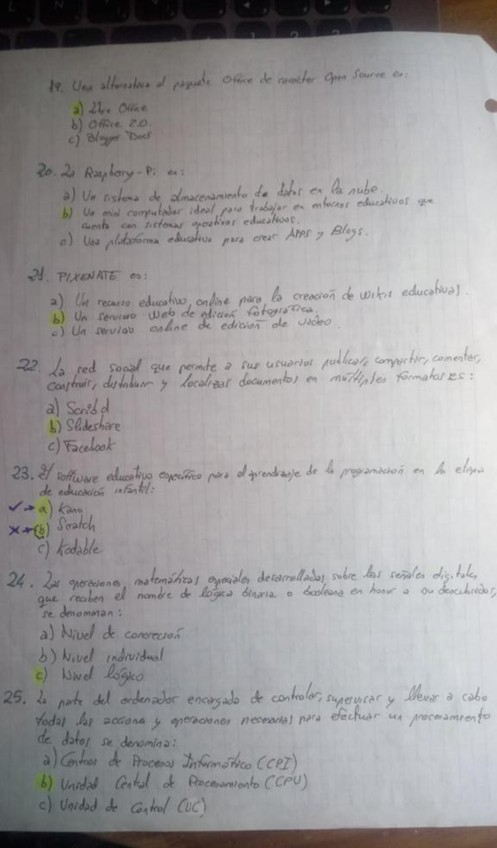 19. Una alternativa al paquete Office de caracter Open Source es:
a) Libre Office
b) Office 2.0
c) Blogger Docs
20. La Raspbery-Pi es:
a) Un sistema de almacenamiento de datos en la nube.
b) Un mini computador ideal para trabajar en entornos educativos que
cuenta con sistemas operativos educativos.
c) Una plataforma educativa para crear APPs y Blogs.
21. PIXENATE es:
a) Un recurso educativo, online para la creación de wikis educativas.
b) Un servicio web de edición fotográfica.
c) Un servicio online de edición de video.
22. La red social que permite a sus usuarios publicar, compartir, comentar,
construir, distribuir y localizar documentos en múltiples formatos es:
a) Scribd
b) Slideshare
c) Facebook
23. El software educativo específico para el aprendizaje de la programación en la etapa
de educación infantil:
a) Kanu
b) Scratch
c) Kodable
24. Las operaciones matemáticas especiales desarrolladas sobre las señales digitales
que reciben el nombre de lógica binaria o booleana en honor a su descubridor,
se denominan:
a) Nivel de concreción
b) Nivel individual
c) Nivel lógico
25. La parte del ordenador encargado de controlar, supervisar y llevar a cabo
todas las acciones y operaciones necesarias para efectuar un procesamiento
de datos se denomina:
a) Centros de Procesos Informático (CPI)
b) Unidad Central de Procesamiento (CPU)
c) Unidad de Control (UC)